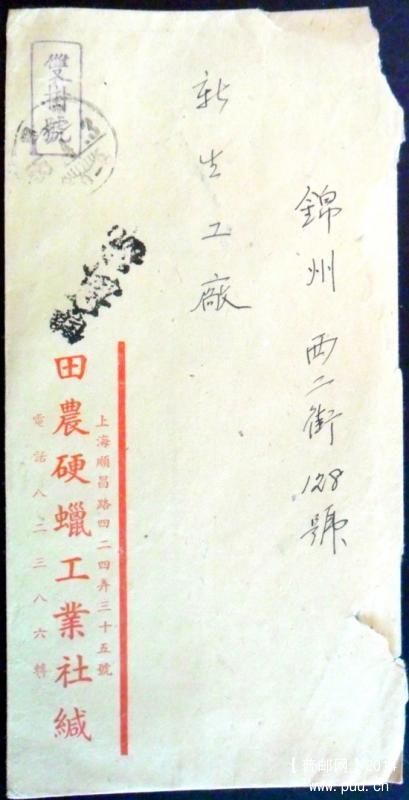 錦州西二街128號
新生工廠
雙掛號
上海順昌路四二四弄三十五號
田農硬蠟工業社緘
電話八二三八六轉
www.puu.cn